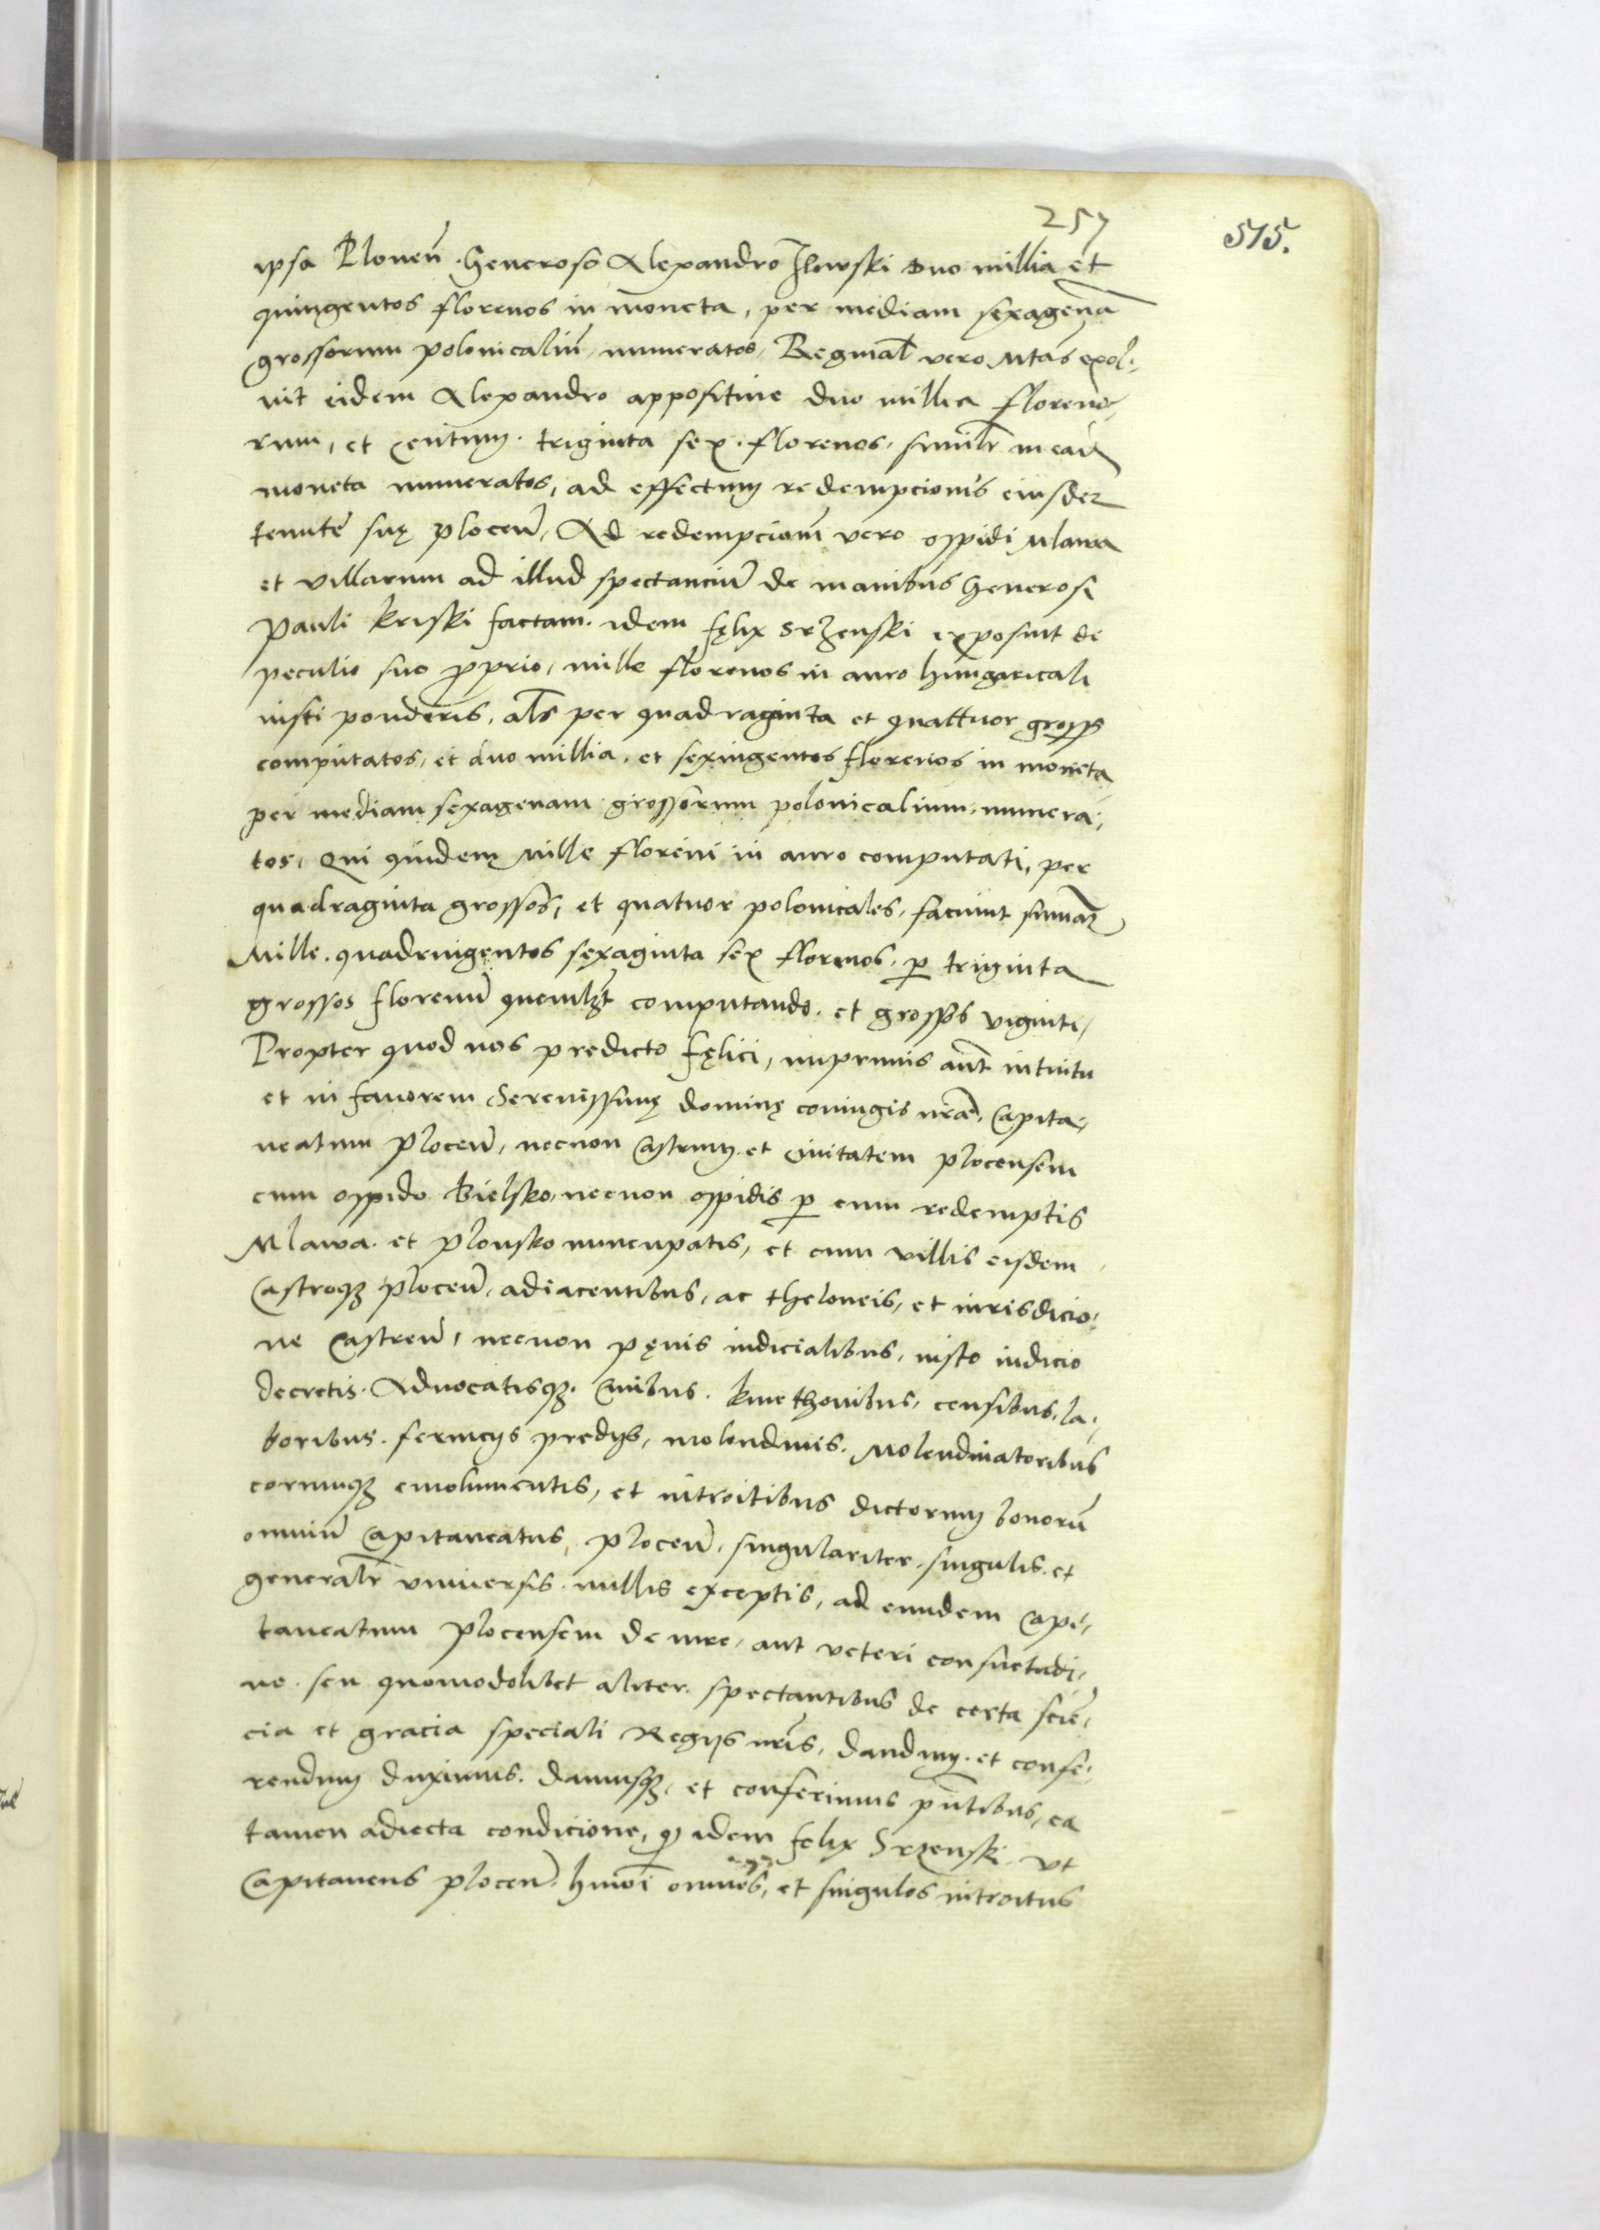 257
515.
ipsa Plonen̄. Generoso Alexandro Ilowski duo millia et
quingentos florenos in moneta, per mediam sexagenā
grossorum polonicaliū, numeratos, Reginal̄ vero Mtās exol-
vit eidem Alexandro appositive duo millia floreno-
rum, et centum triginta sex florenos, similr̄ in ead̄
moneta numeratos, ad effectum redempcionis eiusdem
tenute suę plocen̄, Ad redempcionē vero oppidi Mlawa
et villarum ad illud spectanciū de manibus Generosi
Pauli Kriski factam. idem fęlix Srzenski exposuit de
peculio suo p̄prio, mille florenos in auro hungaricali
iusti ponderis, al̄s per quadraginta et quattuor gross̄
computatos, et duo millia, et sexingentos florenos in moneta
per mediam sexagenam grossorum polonicalium, numera-
tos, Qui quidem Mille floreni in auro computati, per
quadraginta grossos, et quatuor polonicales, faciunt sum̄am
Mille quadringentos sexaginta sex florenos, p̄ triginta
grossos florenū quemlȝt computando, et grossos viginti,
Propter quod nos predicto fęlici, inprimis aut̄ intuitu
et in favorem Serenissimę dominę coniugis nr̄ae, Capita-
neatum plocen̄, necnon Castrum et Civitatem plocensem
cum oppido Bielsko, necnon oppidis p̄ eum redemptis
Mlawa et plonsko nuncupatis, et cum villis eisdem
Castroqȝ plocen̄, adiacentibus, ac theloneis, et iurisdicio-
ne Castren̄, necnon pęnis iudicialibus, iusto iudicio
decretis. Advocatisqȝ. Civibus. kmethonibus, censibus, la-
boribus. fermeys predys, molendinis. Molendinatoribus
eorumqȝ emolumentis, et introitibus dictorum bonorū
omniū Capitaneatus plocen̄, singulariter singulis et
generalr̄ universis nullis exceptis, ad eundem Capi-
taneatum plocensem de iure, aut veteri consuetudi-
ne seu quomodolibet aliter spectantibus de certa scie-
cia et gracia speciali Regys nr̄is, dandum et confe-
rendum duximus. damusqȝ, et conferimus pn̄tibus, ea
tamen adiecta condicione, q̄ idem felix Srzenski ut
Capitaneus plocen̄ hmōi omnes, et singulos introitus